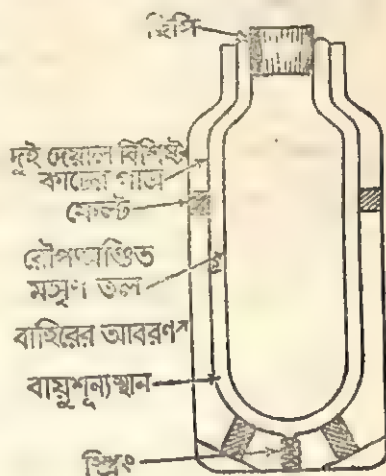 ছিপি
দুই দেয়াল বিশিষ্ট
কাচের পাত্র
ফেল্ট
রৌপ্যমণ্ডিত
মসৃণ তল
বাহিরের আবরণ
বায়ুশূন্যস্থান
স্প্রিং